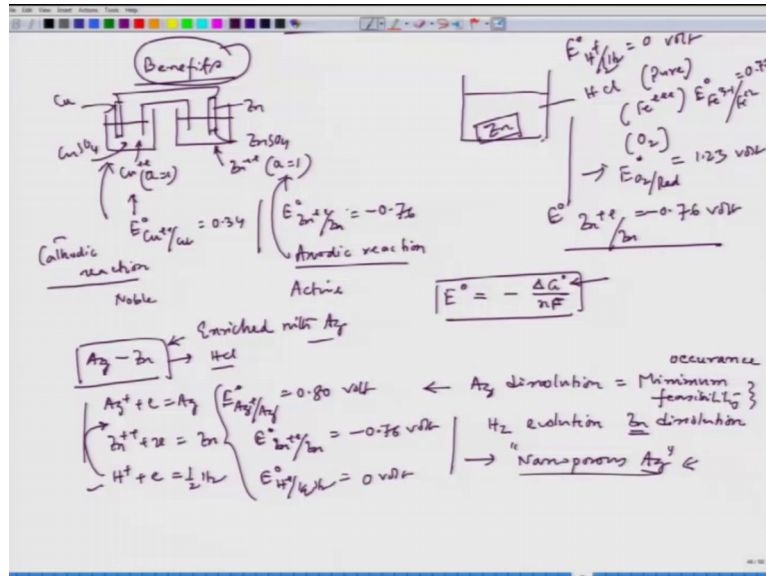 Edit View Insert Actions Tools Help
Benefits
Cu
Zn
CuSO4
ZnSO4
Cu++ (a=1)
Zn++ (a=1)
E°Cu++/Cu = 0.34
E°Zn++/Zn = -0.76
Cathodic reaction
Anodic reaction
Noble
Active
E°H+/H2 = 0 volt
HCl (Pure)
(Fe+++) E°Fe3+/Fe+2 = 0.77
Zn
(O2)
→ E°O2/Red = 1.23 volt
E°Zn++/Zn = -0.76 volt
E° = - ΔG°/nF
Enriched with Ag
Ag - Zn → HCl
Ag+ + e = Ag
Zn++ + 2e = Zn
H+ + e = 1/2 H2
E°Ag+/Ag = 0.80 volt
E°Zn++/Zn = -0.76 volt
E°H+/1/2H2 = 0 volt
occurance
← Ag dissolution = Minimum feasibility }
H2 evolution Zn dissolution
→ "Nanoporous Ag" ←